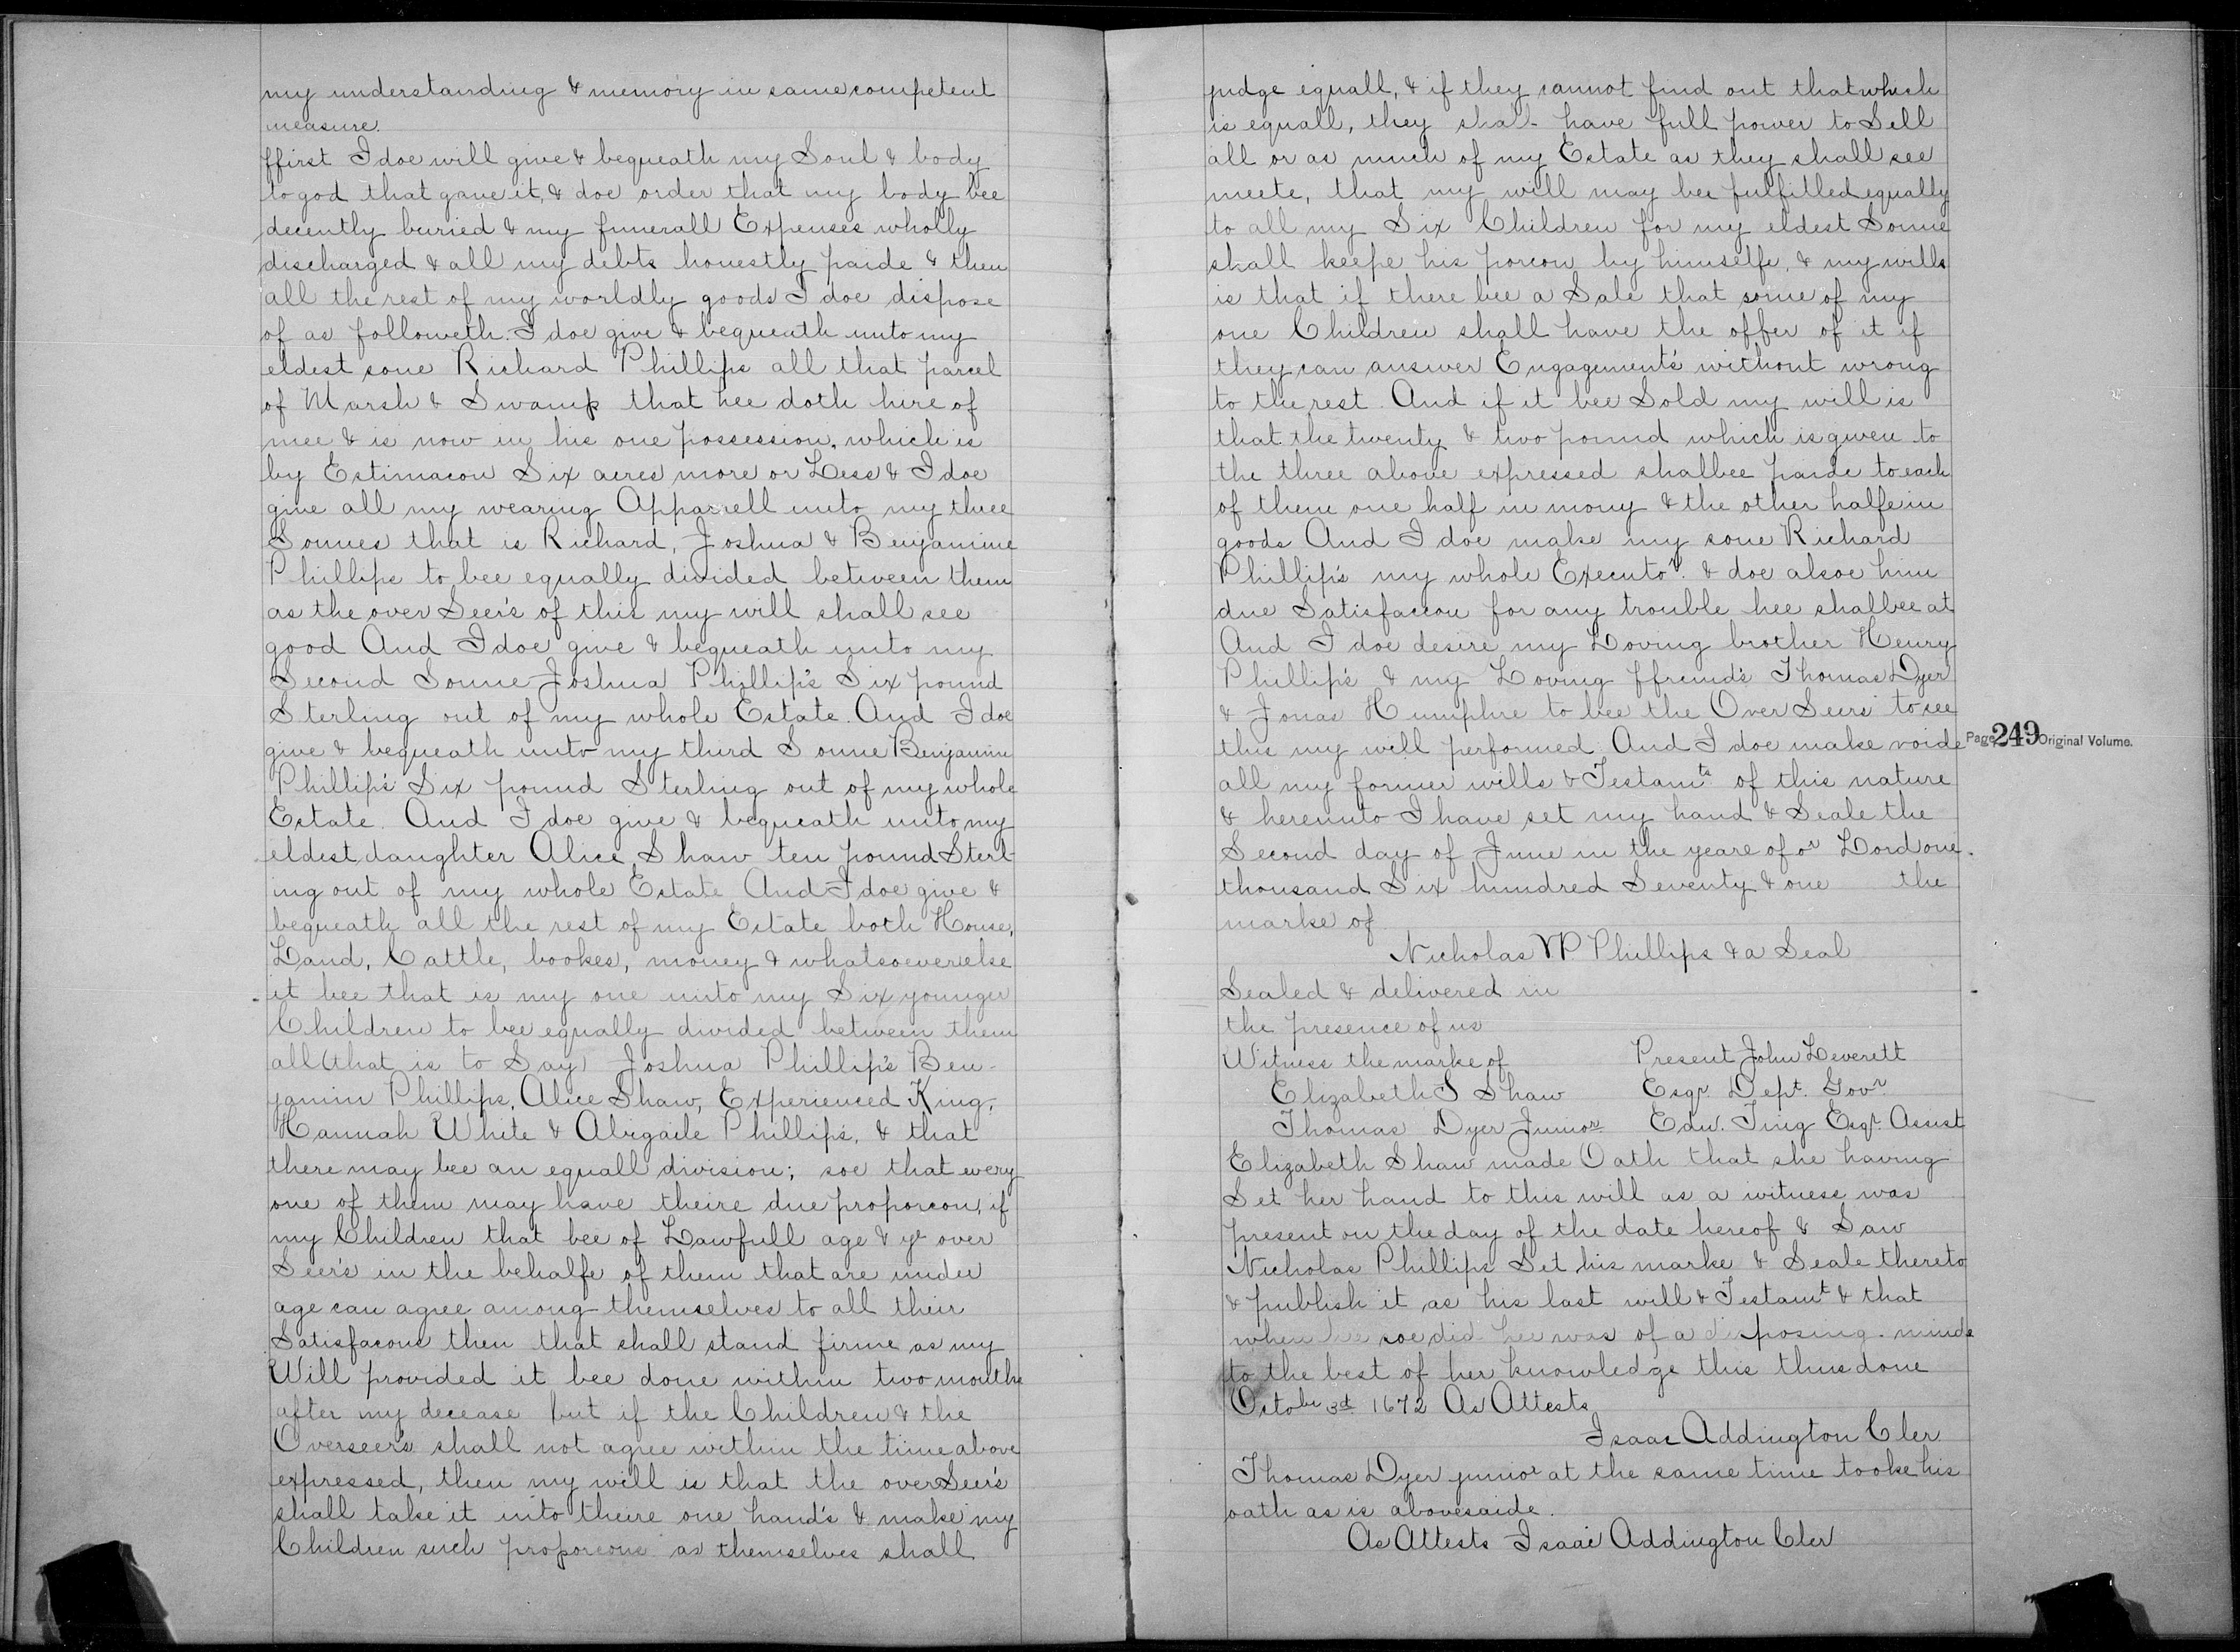 my understanding & memory in same competent
measure.
ffirst I doe will give & bequeath my Soul & body
to god that gave it, & doe order that my body bee
decently buried & my funerall Expenses wholly
discharged & all my debts honestly paide & then
all the rest of my worldly goods I doe dispose
of as followeth. I doe give & bequeath unto my
eldest sone Richard Phillips all that parcel
of Marsh & Swamp that hee doth hire of
mee & is now in his one possession, which is
by Estimacon Six acres more or Less & I doe
give all my wearing Apparrell unto my three
Sonnes that is Richard, Joshua & Benjamine
Phillips to bee equally divided between them
as the over Seer's of this my will shall see
good And I doe give & bequeath unto my
Second Sonne Joshua Phillip's Six pound
Sterling out of my whole Estate. And I doe
give & bequeath unto my third Sonne Benjamin
Phillip's Six pound Sterling out of my whole
Estate. And I doe give & bequeath unto my
eldest daughter Alice Shaw ten pound Sterl-
ing out of my whole Estate And I doe give &
bequeath all the rest of my Estate both House,
Land, Cattle, bookes, money & whatsoever else
it bee that is my one unto my Six younger
Children to bee equally divided between them
all (that is to Say) Joshua Phillip's Ben-
jamin Phillips, Alice Shaw, Experienced King,
Hannah White & Abigaile Phillip's, & that
there may bee an equall division; soe that every
one of them may have theire due proporcon, if
my Children that bee of Lawfull age & ye over
Seer's in the behalfe of them that are under
age can agree among themselves to all their
Satisfacons then that shall stand firme as my
Will provided it bee done within two months
after my decease but if the Children & the
Overseer's shall not agree within the time above
expressed, then my will is that the over Seer's
shall take it into theire one hand's & make my
Children such proporcons as themselves shall
judge equall, & if they cannot find out that which
is equall, they shall have full power to Sell
all or as much of my Estate as they shall see
meete, that my will may bee fulfilled equally
to all my Six Children for my eldest Sonne
shall keepe his porcon by himselfe, & my wills
is that if there bee a Sale that some of my
one Children shall have the offer of it if
they can answer Engagement's without wrong
to the rest. And if it bee Sold my will is
that the twenty & two pound which is given to
the three above expressed shalbee paide to each
of them one half in mony & the other halfe in
goods And I doe make my sone Richard
Phillip's my whole Executor. & doe alsoe him
due Satisfaccon for any trouble hee shalbee at
And I doe desire my Loving brother Henry
Phillip's & my Loving ffreind's Thomas Dyer
& Jonas Humphre to bee the Over Seers to see
this my will performed And I doe make voide
Page 249 Original Volume.
all my former wills & Testamts of this nature
& hereunto I have set my hand & Seale the
Second day of June in the yeare of or Lord one
thousand Six hundred Seventy & one the
marke of
Nicholas NP Phillips & a Seal
Sealed & delivered in
the presence of us
Witness the marke of Present John Leverett
Elizabeth S Shaw Esqr. Dept. Govr
Thomas Dyer Junior Edw. Ting Esqr. Assist
Elizabeth Shaw made Oath that she having
Set her hand to this will as a witness was
present on the day of the date hereof & Saw
Nicholas Phillips Set his marke & Seale thereto
& publish it as his last will & Testamt & that
when hee soe did hee was of a disposing minde
to the best of her knowledge this thus done
Octobr 3d 1672 As Attests
Isaac Addington Cler.
Thomas Dyer junior at the same time tooke his
oath as is abovesaide.
As Attests Isaac Addington Cler